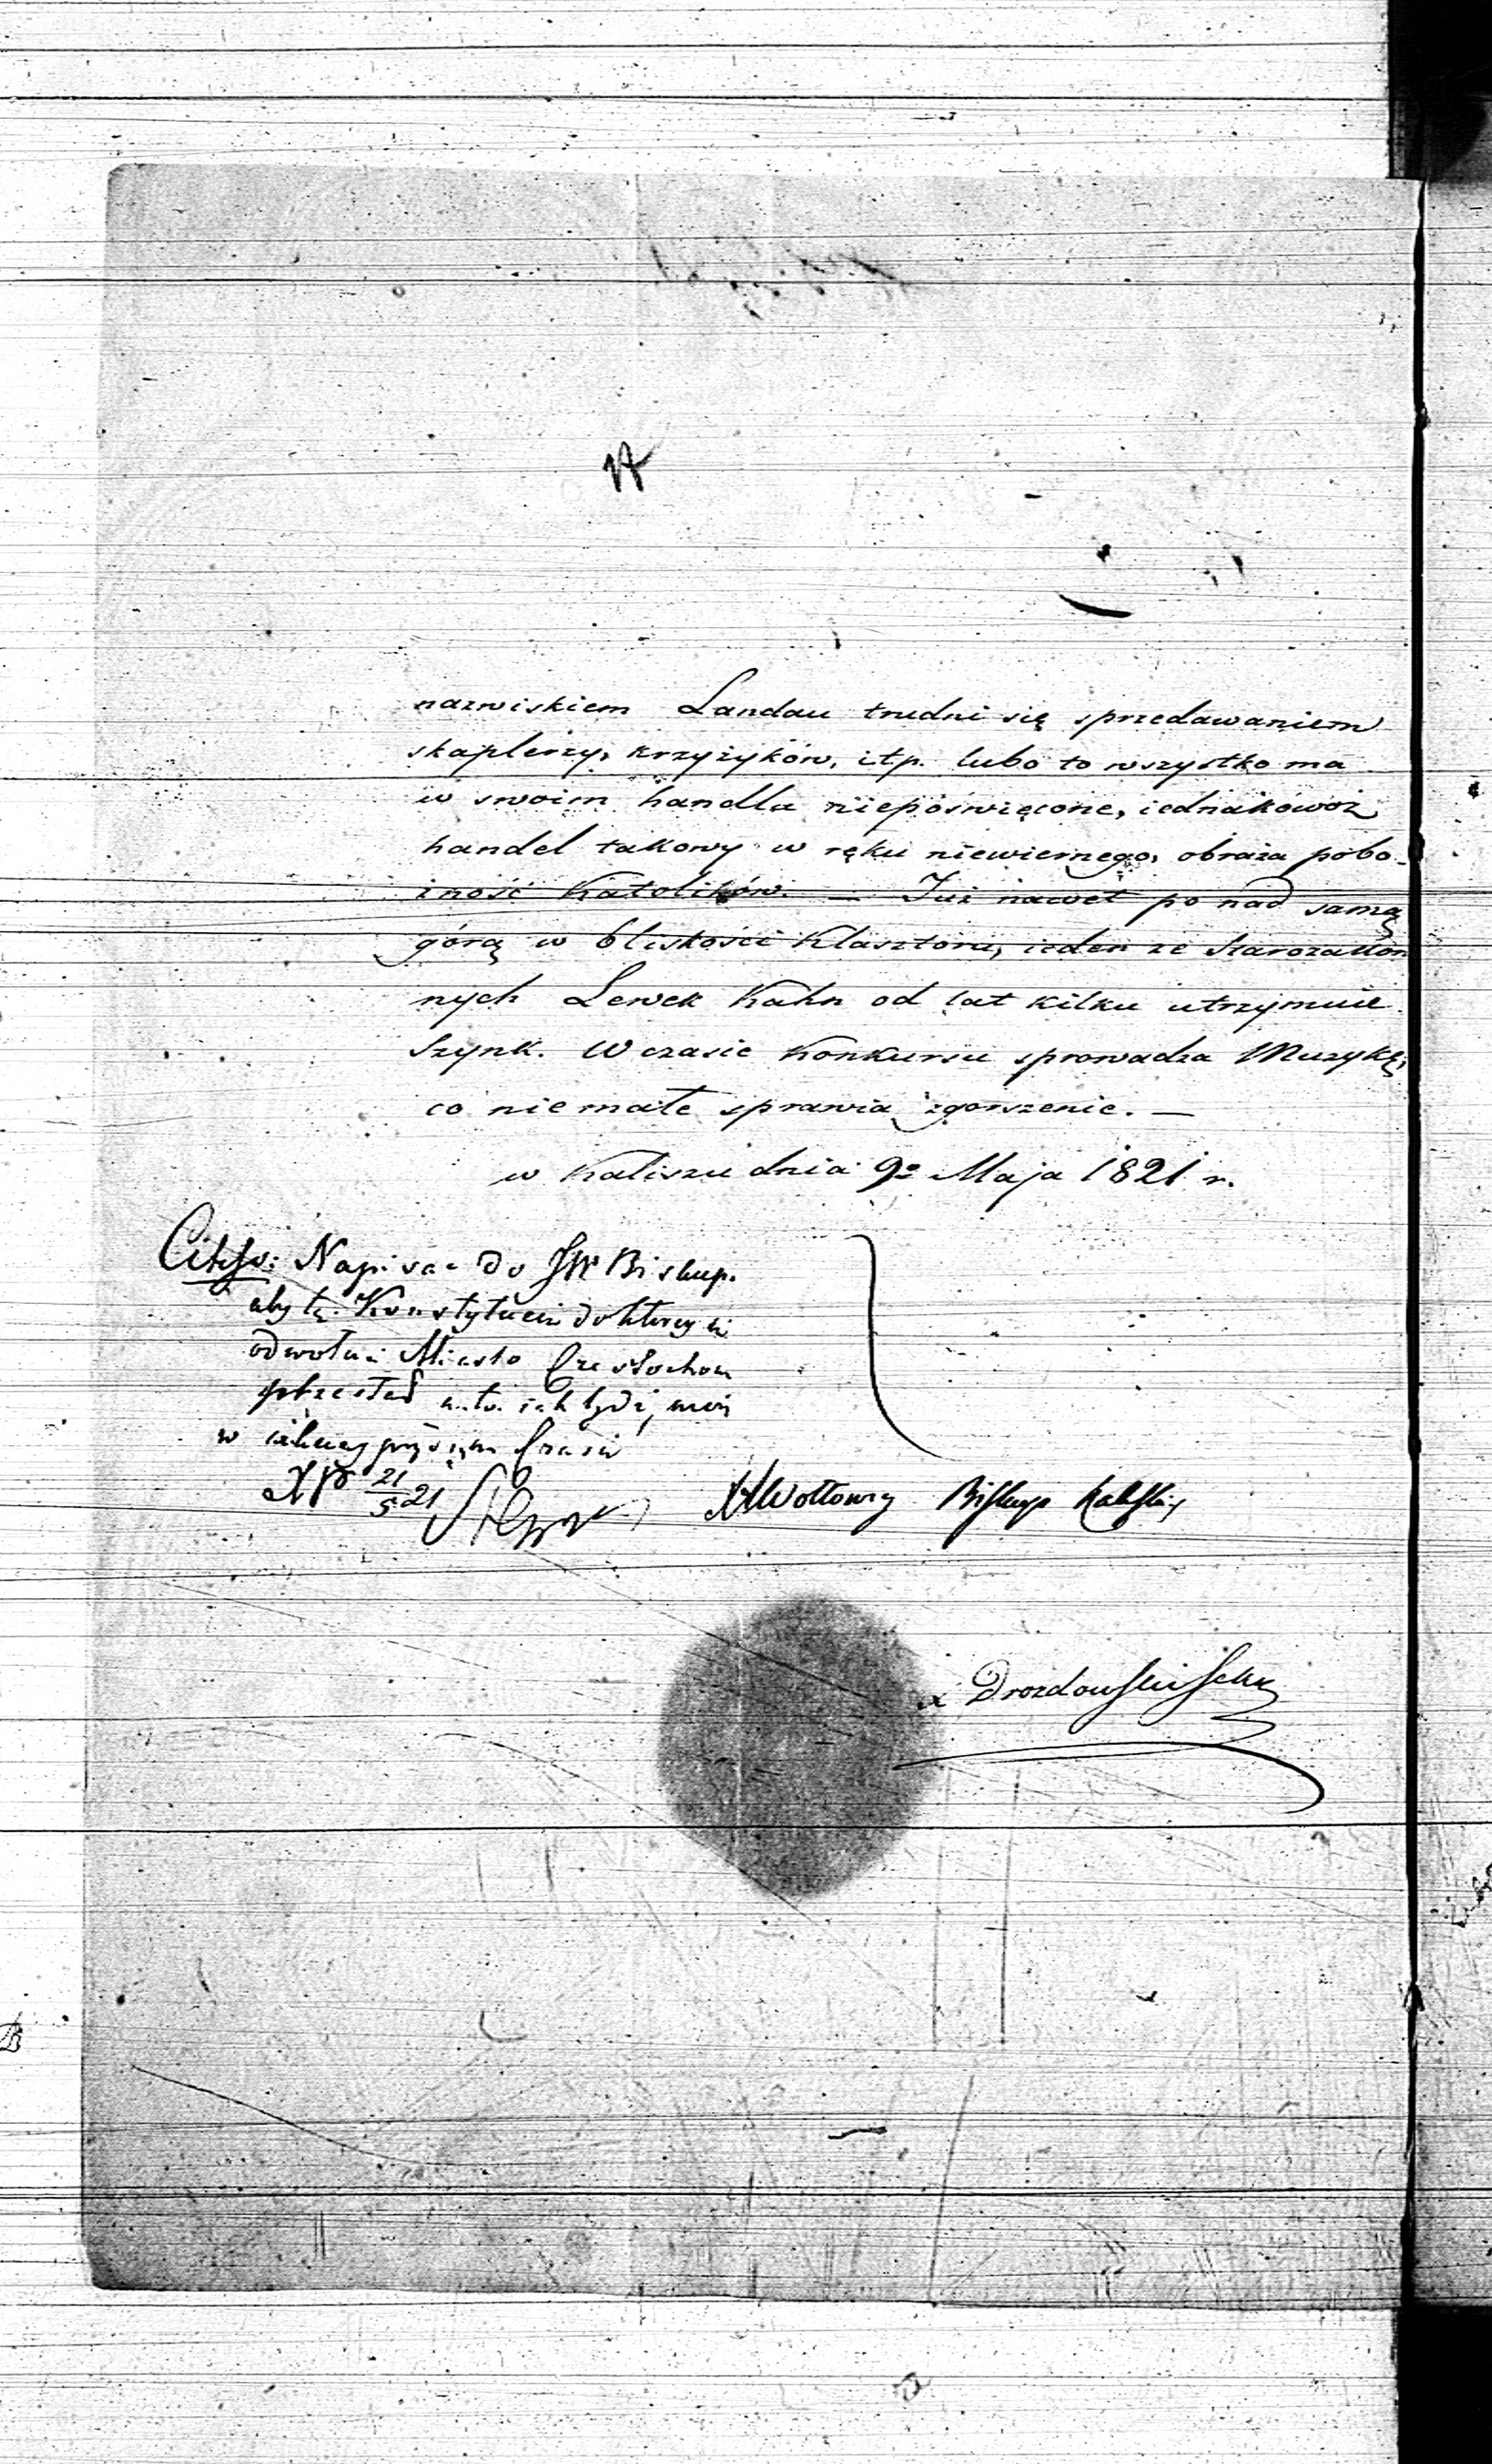 nazwiskiem Landau trudni się sprzedawaniem
skaplerzy, krzyżyków, itp. lubo to wszystko ma
w swoim handlu niepoświęcone, iednakowoż
handel takowy w ręku niewiernego, obraża pobo-
żność Katolików. — Już nawet po nad samą
górą w bliskości Klasztoru, ieden ze Starozakon
nych Lewek Kahn od lat kilku utrzymuie
Szynk. W czasie Konkursu sprowadza Muzykę,
co nie małe sprawia zgorszenie. —
w Kaliszu dnia 9º Maja 1821 r.
Napisać do JW Biskup.
aby tę Konstytucię do którey się
odwołuie Miasto Częstochow
przesłał
w
21/5 21
X Wołłowicz Biskup Kaliski
X Drozdowski Sekr